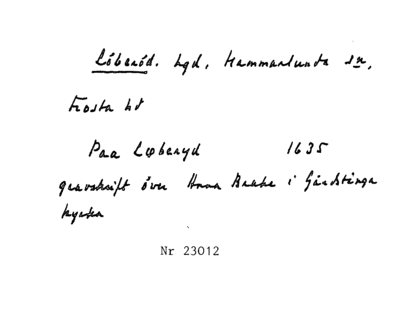 Löberöd. hgd, Hammarlunda sn,
Frosta hd
Paa Løberyd 1635
gravskrift över Anna Brahe i Gårdstånga
kyrka
Nr 23012